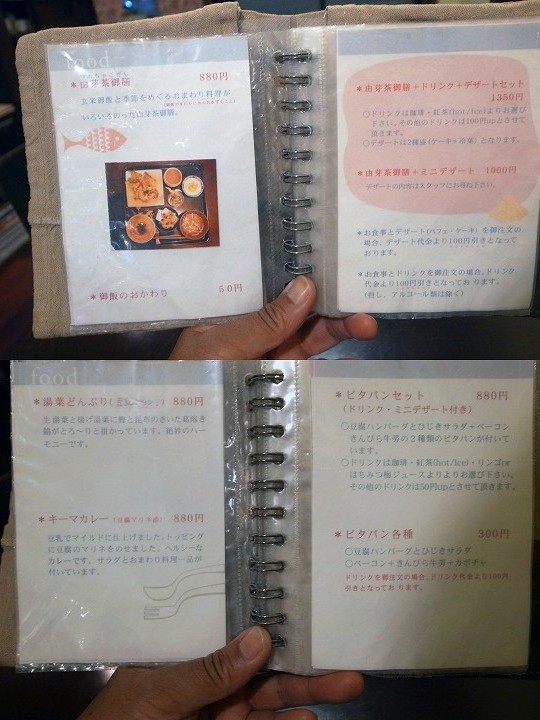 food
*由芽茶御膳 880円
玄米御飯と季節をめぐるおまわり料理が
いろいろのった由芽茶御膳。
*御飯のおかわり 50円
*由芽茶御膳+ドリンク+デザートセット
1350円
○ドリンクは珈琲・紅茶(hot/ice)よりお選び
下さい。その他のドリンクは100円upとさせて
頂きます。
○デザートは2種盛(ケーキ+冷菓)となります。
*由芽茶御膳+ミニデザート 1000円
デザートの内容はスタッフにお尋ね下さい。
*お食事とデザート(パフェ・ケーキ)を御注文の
場合、デザート代金より100円引きとなって
おります。
*お食事とドリンクを御注文の場合、ドリンク
代金より100円引きとなっております。
(但し、アルコール類は除く)
food
*湯葉どんぶり 880円
生湯葉と揚げ湯葉に鰹と昆布のきいた葛溜き
餡がとろ～りと掛かっています。絶妙のハー
モニーです。
*キーマカレー(豆腐マリネ添) 880円
豆乳でマイルドに仕上げました。トッピング
に豆腐のマリネをのせました。ヘルシーな
カレーです。サラダとおまわり料理一品が
付いています。
*ピタパンセット 880円
(ドリンク・ミニデザート付き)
○豆腐ハンバーグとひじきサラダ+ベーコン
きんぴら牛蒡の2種類のピタパンが付いて
います。
○ドリンクは珈琲・紅茶(hot/ice)・リンゴor
はちみつ梅ジュースよりよりお選び下さい。
その他のドリンクは50円upとさせて頂きます。
*ピタパン各種 300円
○豆腐ハンバーグとひじきサラダ
○ベーコン+きんぴら牛蒡+カボチャ
ドリンクを御注文の場合、ドリンク代金より100円
引きとなっております。